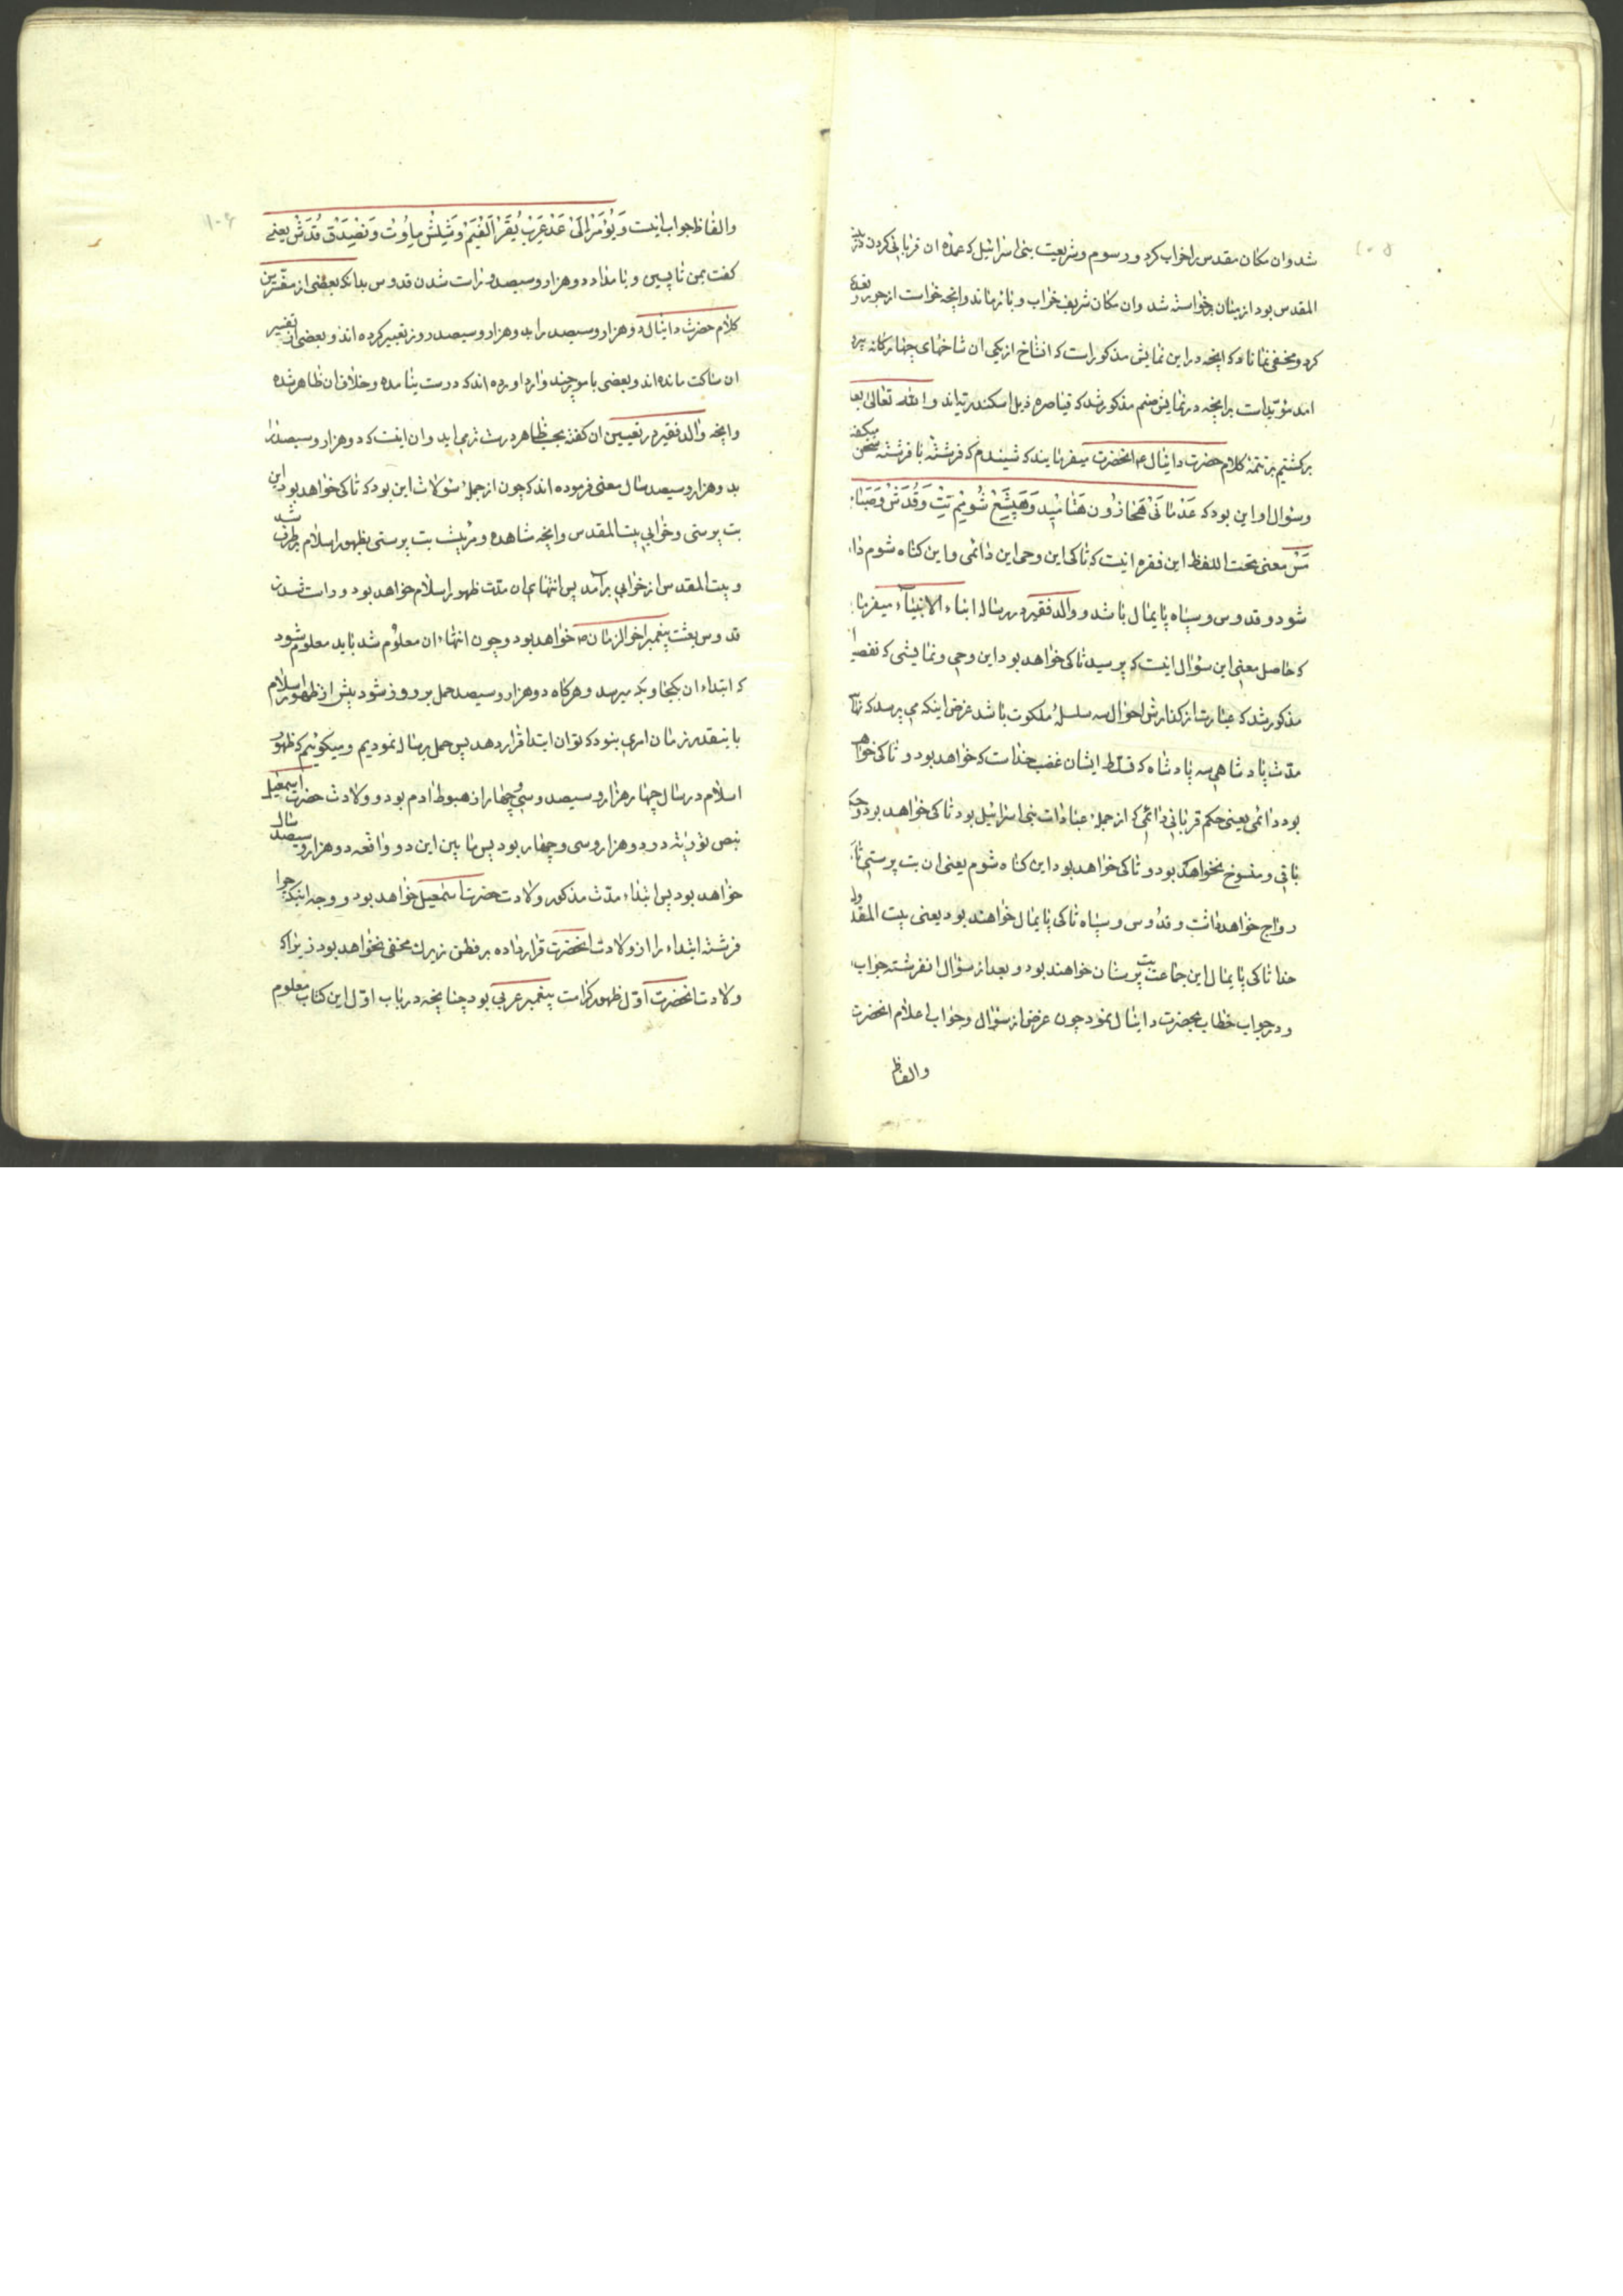 شد وان مکان مقدس را خراب کرد و رسوم و شریعت بنی اسرائیل که عمده ان قربانی کردن در بیت
المقدس بود از میان برخواسته شد وان مکان شریف خراب و بائر ماند وانچه خواست از جور و تعدی
کرد و مخفی نماناد که انچه در این نمایش مذکور است که انشاخ از یکی ان شاخهای چهارکانه بیرون
امد مؤید است برانچه در نمایش صنم مذکور شد که قیاصره ذیل اسکندرتیاند والله تعالی یعلم
برکشتیم بر تتمه کلام حضرت دانیال ع انحضرت میفرمایند که شنیدم که فرشتهٔ با فرشته سخن میکفت
وسؤال او این بود که عَدْ ماتَیْ هَحَازُون هَتَّامِید وَهَپِشَع شُومِم تِیتْ وَقُدَشْ وَصَبَاء
مَسْ معنی تحت اللفظ این فقره اینست که تا کی این وحی این دائمی و این کناه شوم داده
شود و قدوس و سپاه پایمال باشد و والد فقیر در رساله ابناء الانبیاء میفرماید
که حاصل معنی این سؤال اینست که پرسید تا کی خواهد بود این وحی و نمایشی که تفصیلا
مذکور شد که عبارت از کذارش احوال سه سلسلهٔ ملکوت باشد غرض اینکه می پرسد که نهایت
مدت پادشاهی سه پادشاه که تسلط ایشان غضب خداست که خواهد بود و تا کی خواهد
بود دائمی یعنی حکم قربانی دائمی که از جملهٔ عبادات بنی اسرائیل بود تا کی خواهد بود و حکم
باقی و منسوخ نخواهد بود و تا کی خواهد بود این کناه شوم یعنی ان بت پرستی تا کی
رواج خواهد داشت و قدوس و سپاه تا کی پایمال خواهند بود یعنی بیت المقدس و
خدا تا کی پایمال این جماعت بت پرستان خواهند بود و بعد از سؤال انفرشته جواب
و در جواب خطاب بحضرت دانیال نمود چون غرض از سؤال و جواب اعلام انحضرت
والفاظ
والفاظ جواب اینست وَیُؤمَرْ الَیْ عَدْ عِرِبْ بُقَرْ اَلفَیِمْ وَشِیلْشْ مِاُوتْ وَنِصْیدَقْ قُدَشْ یعنی
کفت بمن تا پسین و بامداد دو هزار و سیصد و راست شدن قدوس بدانکه بعضی از مفسرین
کلام حضرت دانیال دو هزار و سیصد را بدو هزار و سیصد روز تعبیر کرده اند و بعضی از تفسیر
ان ساکت مانده اند و بعضی باموچند وارد اورده اند که درست نیامده و خلاف ان ظاهر شده
وانچه والد فقیر در تعیین ان کفته بحسب ظاهر درست تر می اید وان اینست که دو هزار و سیصد را
بدو هزار و سیصد سال معنی فرموده اند که چون از جملهٔ سؤلات این بود که تا کی خواهد بود این
بت پرستی و خرابی بیت المقدس وانچه شاهده و مرئیست بت پرستی بظهور اسلام برطرف شد
و بیت المقدس از خرابی برآمد پس انتهای ان مدت ظهور اسلام خواهد بود و راست شدن
قدوس بعثت پیغمبر اخرالزمان ص خواهد بود و چون انتهاء ان معلوم شد باید معلوم شود
که ابتداء ان بکجا و بکه میرسد و هرکاه دو هزار و سیصد حمل بر روز شود پیش از ظهور اسلام
باینقدر زمان امری نبود که توان ابتدا قرار دهد پس حمل بر سال نمودیم و میکوئیم که ظهور
اسلام در سال چهار هزار و سیصد و سی و چهار از هبوط ادم بود و ولادت حضرت اسمعیل
بنص توریة در دو هزار و سی و چهار بود پس ما بین این دو واقعه دو هزار و سیصد سال
خواهد بود پس ابتداء مدت مذکور ولادت حضرت اسمعیل خواهد بود و وجه اینکه چرا
فرشته ابتداء را از ولادت انحضرت قرار داده بر فطن زیرک مخفی نخواهد بود زیرا که
ولادت انحضرت اول ظهور کرامت پیغمبر عربی بود چنانچه در باب اول این کتاب معلوم